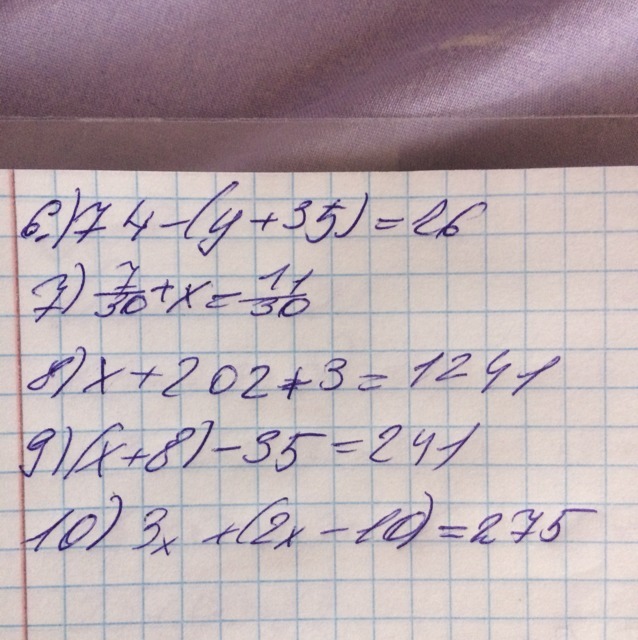 6.) 74-(y+35)=26
7) 7/30+x=11/30
8) x+202*3=1241
9) (x+8)-35=241
10) 3x+(2x-10)=275